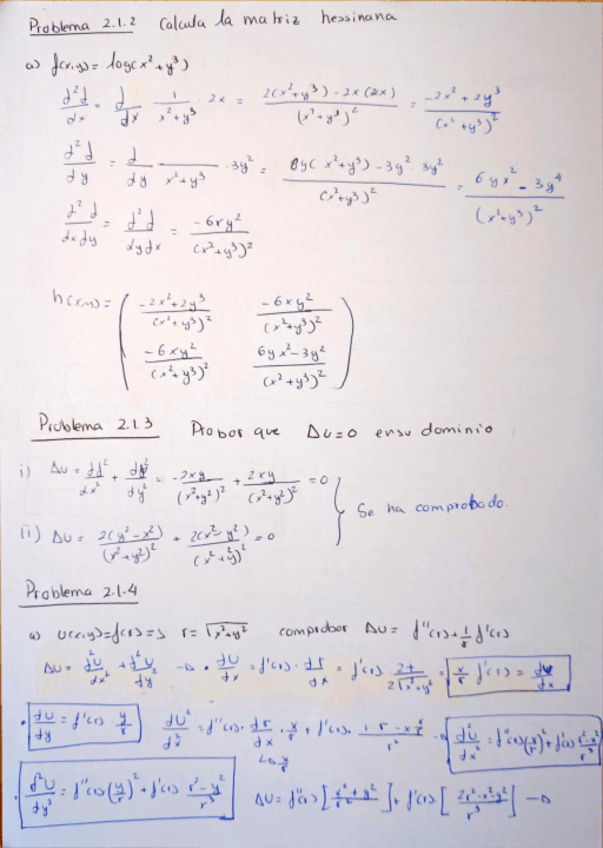 Problema 2.1.2 Calcula la matriz hessinana
a) f(x,y) = log(x² + y³)
d²f/dx = d/dx 1/(x² + y³) · 2x = (2(x² + y³) - 2x(2x))/(x² + y³)² = (-2x² + 2y³)/(x² + y³)²
d²f/dy = d/dy 1/(x² + y³) · 3y² = (6y(x² + y³) - 3y² · 3y²)/(x² + y³)² = (6yx² - 3y⁴)/(x² + y³)²
d²f/dxdy = d²f/dydx = -6xy²/(x² + y³)²
h(x,y) = ( (-2x² + 2y³)/(x² + y³)² -6xy²/(x² + y³)²
-6xy²/(x² + y³)² (6yx² - 3y²)/(x² + y³)² )
Problema 2.1.3 Probar que Δu = 0 en su dominio
i) Δu = df²/dx² + df²/dy² = -2xy/(x² + y²)² + 2xy/(x² + y²)² = 0
Se ha comprobado.
ii) Δu = 2(y² - x²)/(x² + y²)² + 2(x² - y²)/(x² + y²)² = 0
Problema 2.1.4
a) U(x,y) = f(r) => r = √(x² + y²) comprobar Δu = f''(r) + 1/r f'(r)
Δu = d²U/dx² + d²U/dy² → · dU/dx = f'(r) · dr/dx = f'(r) · 2x/(2√(x² + y²)) = x/r f'(r) = du/dx
· dU/dy = f'(r) · y/r dU²/dx² = f''(r) · dr/dx · x/r + f'(r) · (1·r - x·x/r)/r² → d²U/dx² = f''(r)(x/r)² + f'(r) (r² - x²)/r³
↳ x/r
· d²U/dy² = f''(r)(y/r)² + f'(r) (r² - y²)/r³ ΔU = f''(r) [(x² + y²)/r²] + f'(r) [(2r² - x² - y²)/r³] →